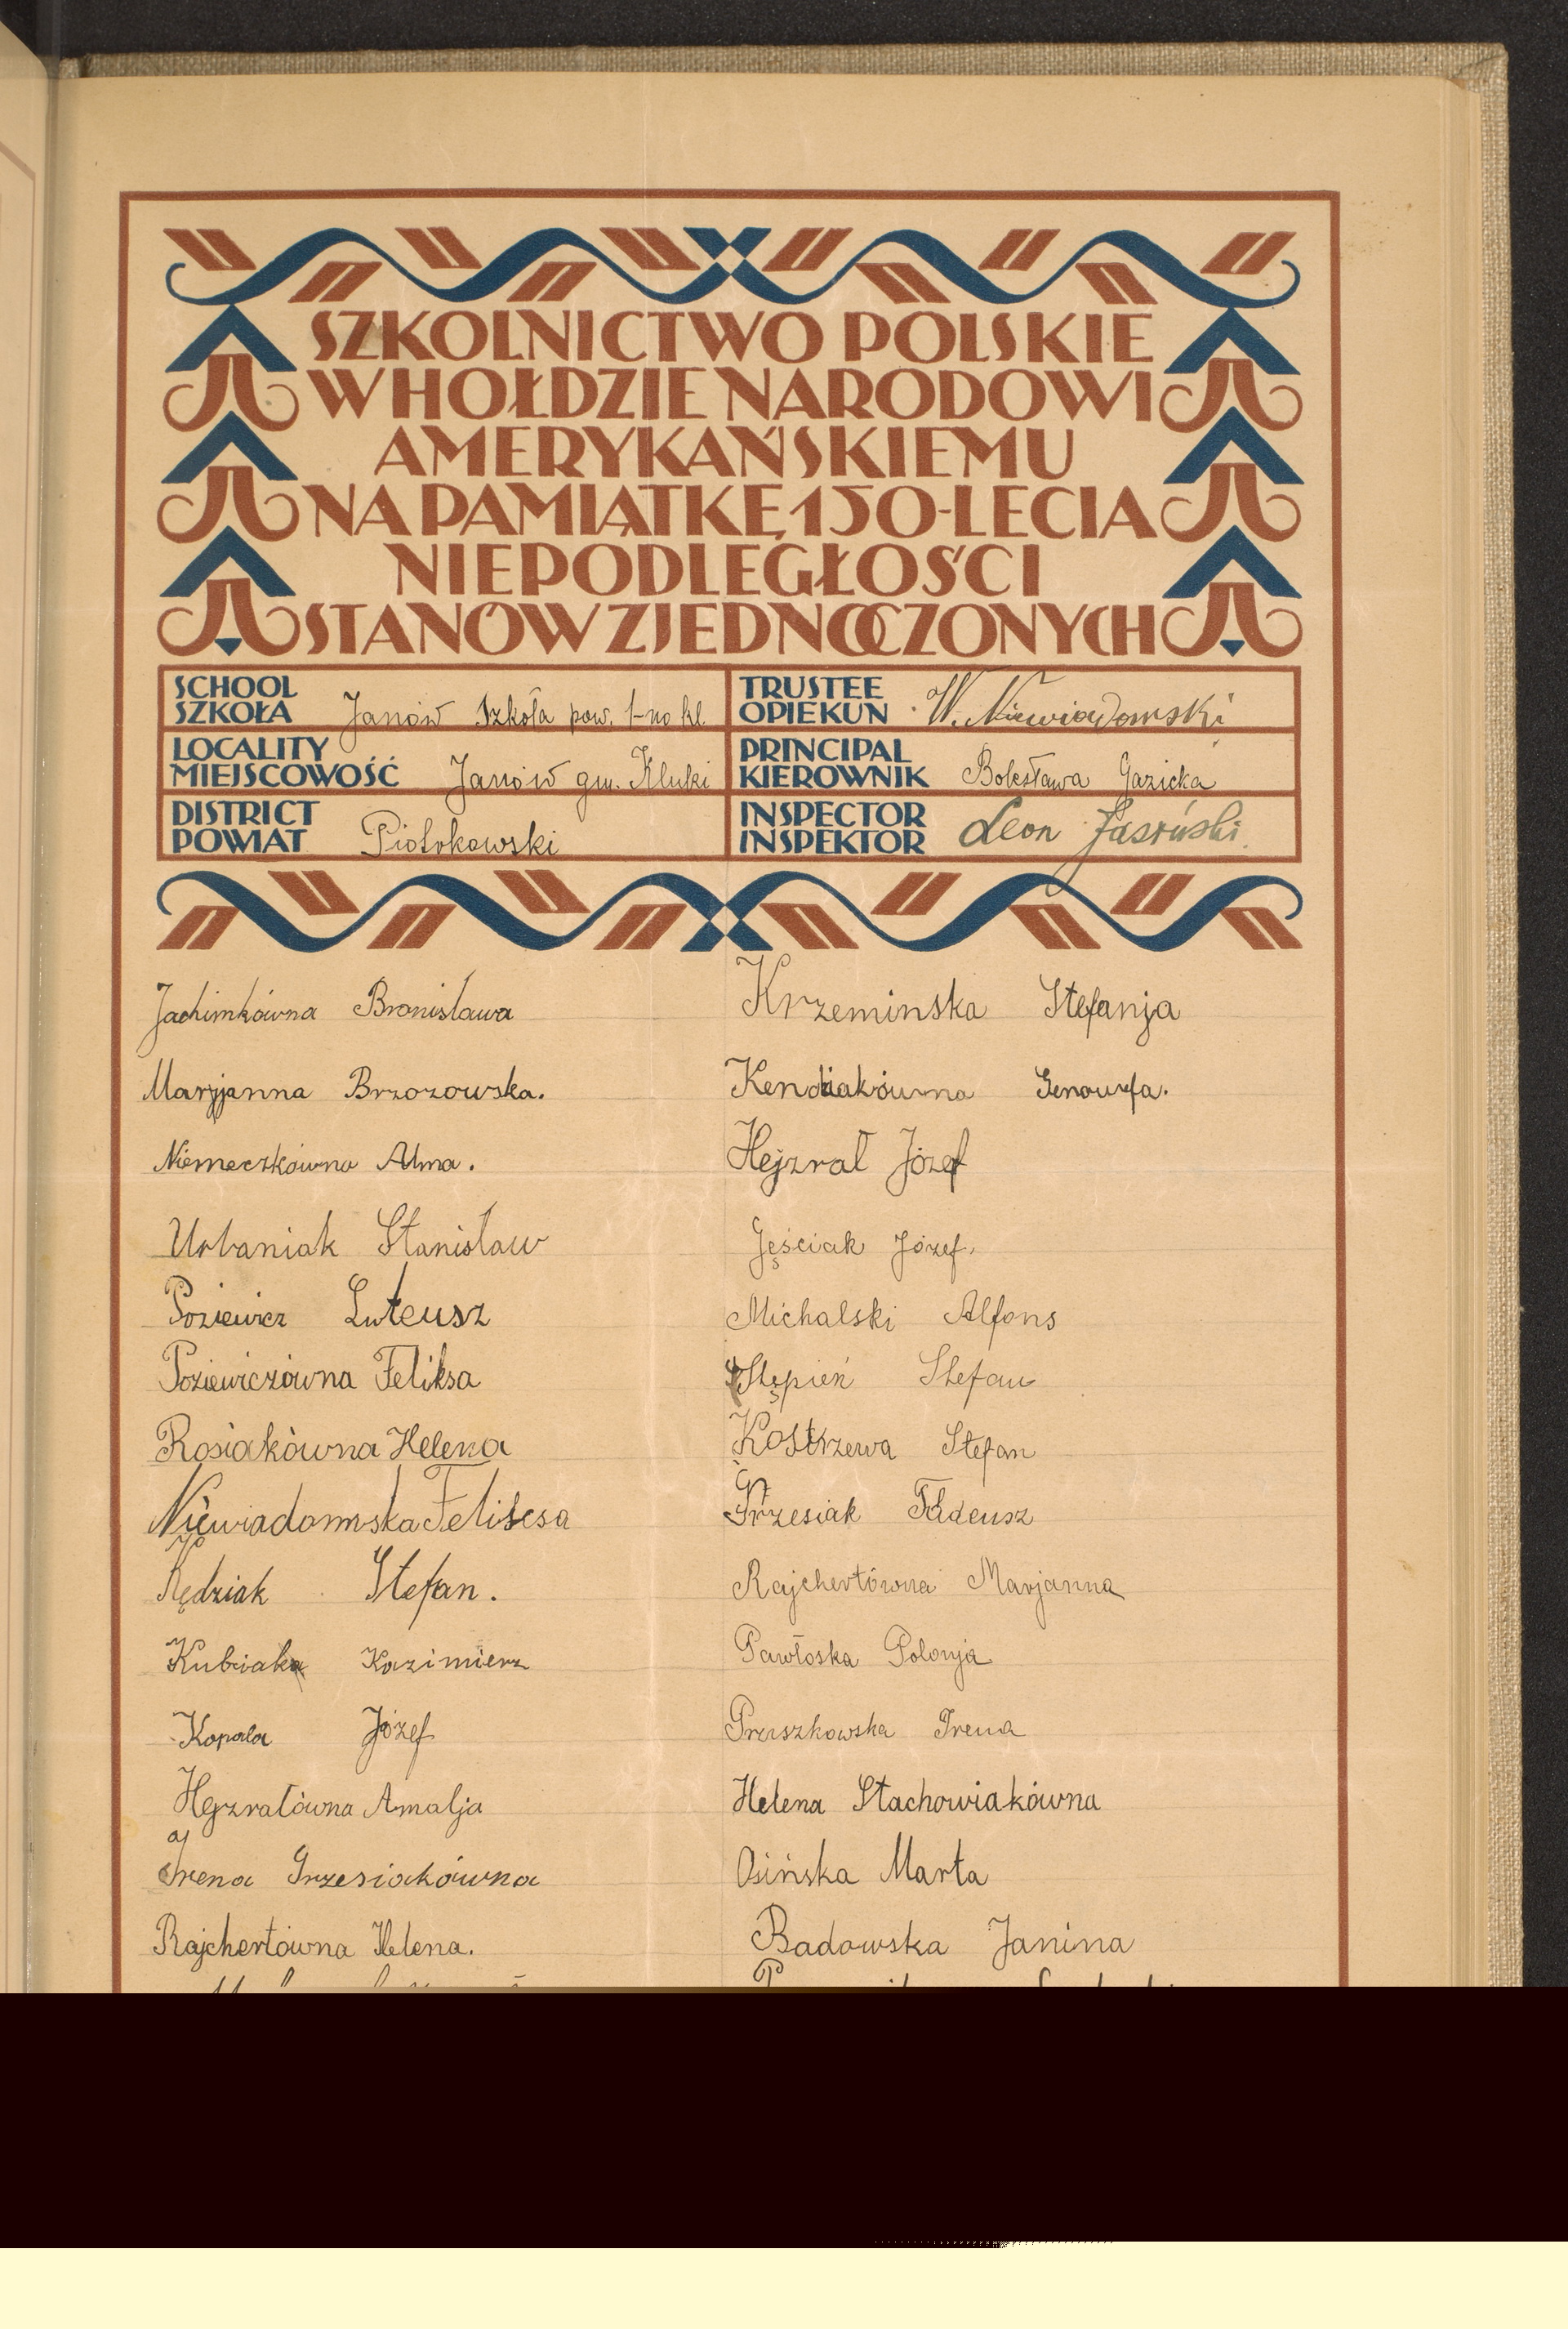 SZKOLNICTWO POLSKIE
W HOŁDZIE NARODOWI
AMERYKAŃSKIEMU
NA PAMIĄTKĘ 150-LECIA
NIEPODLEGŁOŚCI
STANÓW ZJEDNOCZONYCH
SCHOOL
SZKOŁA Janów Szkoła pow. 1-no kl.
TRUSTEE
OPIEKUN W. Niewiadomski
LOCALITY
MIEJSCOWOŚĆ Janów gm. Kluki
PRINCIPAL
KIEROWNIK Bolesława Gazicka
DISTRICT
POWIAT Piotrkowski
INSPECTOR
INSPEKTOR Leon Jasiński
Jachimkówna Bronisława
Marjanna Brzozowska.
Niemeczkówna Alma.
Urbaniak Stanisław
Poziewicz Luteusz
Poziewiczówna Feliksa
Rosiakówna Helena
Niewiadomska
Kędziak Stefan.
Kubiak Kazimierz
Kopala Józef
Hejzrałówna Amalja
Irena Grzesiakówna
Rajchertówna Helena.
Krzeminska Stefanja
Kendziakówna Genowefa.
Hejzrał Józef
Józef.
Michalski Alfons
Stępień Stefan
Kostrzewa Stefan
Grzesiak Tadeusz
Rajchertówna Marjanna
Pawłoska Polonja
Pruszkowska Irena
Helena Stachowiakówna
Osińska Marta
Badowska Janina